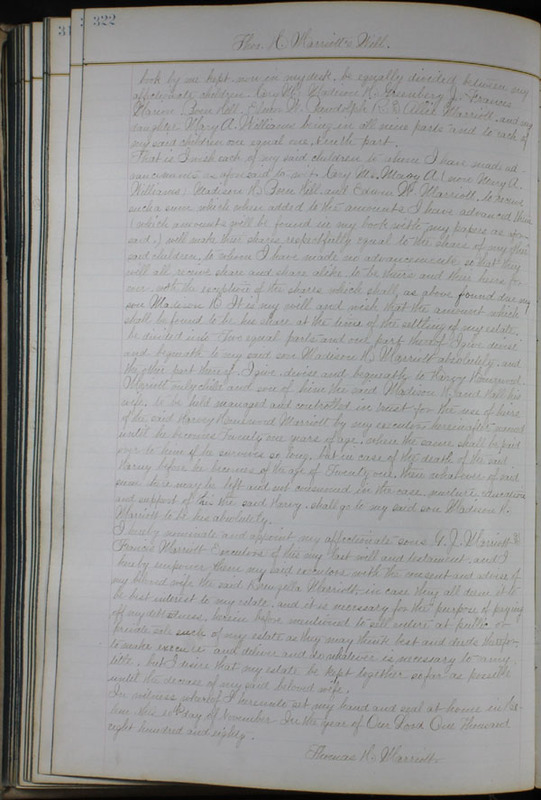 322
Thos. H. Marriott's Will.
book by me kept now in my desk, be equally divided between my
affectionate children Cory M. Madison K. Greenberry J. Francis
Marion Benn Hill, Edwin W. Randolph R. & Allie Marriott, and my
daughter Mary A. Williams being in all nine parts and to each of
my said children one equal one Ninth part.
That is I wish each of my said children to whom I have made ad-
vancements as aforesaid to wit: Cory M. Mary A. (now Mary A.
Williams) Madison K. Benn Hill and Edwin W. Marriott, to receive
such a sum which when added to the amounts I have advanced them
(which amounts will be found in my book with my papers as afore
said,) will make their shares respectfully equal to the shares of my other
said children, to whom I have made no advancements so that they
will all receive share and share alike to be theirs and their heirs for-
ever, with the exception of the shares which shall, as above found due my
son Madison K. It is my will and wish that the amount which
shall be found to be his share at the time of the settling of my estate,
be divided into Two equal parts and one part thereof I give devise
and bequeath to my said son Madison K. Marriott absolutely, and
the other part thereof, I give, devise and bequeath to Harvy
Marriott only child and son of him the said Madison K. and his
wife, to be held managed and controlled in trust for the use of him
of the said Harvy Marriott by my executors hereinafter named
until he becomes Twenty one years of age, when the same shall be paid
over to him if he survives so long, but in case of the death of the said
Harvy before he becomes of the age of Twenty one, then what ever of said
sum there may be left and not consumed in the care, nurture education
and support of him the said Harvy, shall go to my said son Madison K.
Marriott to be his absolutely.
I hereby nominate and appoint my affectionate sons G. J. Marriott &
Francis Marriott Executors of this my last will and testament, and I
hereby empower them my said executors with the consent and advice of
my beloved wife the said Marriott, in case they all deem it to
be best interest to my estate, and it is necessary for the purpose of paying
off my debts, herein before mentioned to sell under at public or
private sale such of my estate as they may think best and deeds therefor
to make execute and deliver and do whatever is necessary to convey
title, but I desire that my estate be kept together so far as possible
until the decease of my said beloved wife.
In witness whereof I hereunto set my hand and seal at home in
this 10th day of November In the year of Our Lord One Thousand
eight hundred and eighty.
Thomas H. Marriott